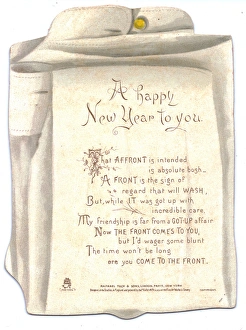 A happy
New Year to you.
That AFFRONT is intended
is absolute bosh,
A FRONT is the sign of
regard that will WASH,
But, while IT was got up with
incredible care,
My friendship is far from a GOT-UP affair
Now THE FRONT COMES TO YOU,
but I'd wager some blunt
The time won't be long
ere YOU COME TO THE FRONT.
RAPHAEL TUCK & SONS, LONDON, PARIS, NEW YORK.